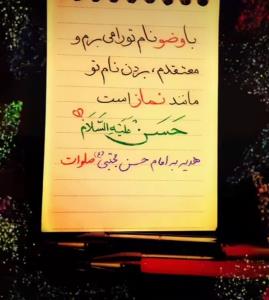 با وضو نام تو را می برم و
معتقدم، بردن نام تو
مانند نماز است
حَسَن عَلَیهِ السَّلام
هدیه به امام حسن مجتبی (ع) صلوات